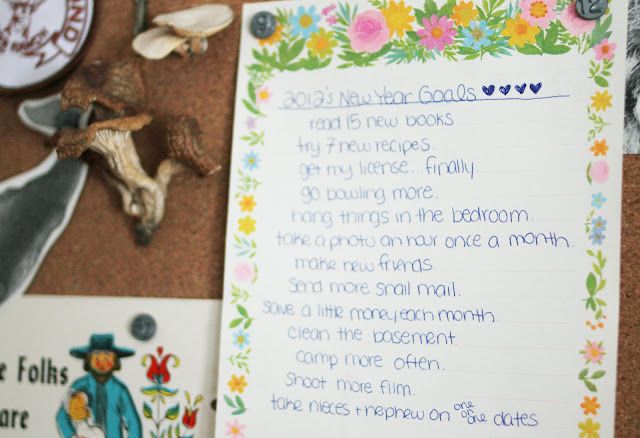 2012's New Year Goals
read 15 new books
try 7 new recipes.
get my license... finally.
go bowling more.
hang things in the bedroom.
take a photo an hour once a month.
make new friends.
send more snail mail.
save a little money each month.
clean the basement.
camp more often.
shoot more film.
take nieces + nephew on one on one dates
e Folks
are